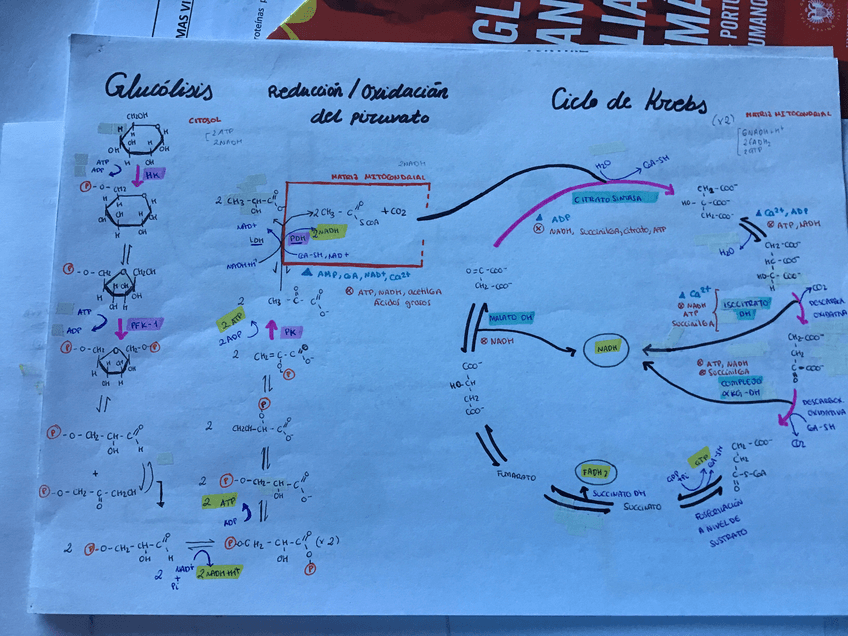 MAS VI
oteínas p
GL
AN
LIA
MA
PORTO
UMANO
Glucólisis
CITOSOL
2 ATP
2 NADH
CH₂OH
ATP
ADP
HK
P-O-CH₂
P-O-CH₂ CH₂OH
ATP
ADP
PFK-1
P-O-CH₂ CH₂-O-P
P-O-CH₂-CH-C
OH
+
P-O-CH₂-C-CH₂OH
O
2 P-O-CH₂-CH-C
OH H
2 NAD⁺
+
Pi
2 NADH+H⁺
P-OCH₂-CH-C (x2)
OH O
P
Reducción/Oxidación
del piruvato
2NADH
MATRIZ MITOCONDRIAL
2 CH₃-CH-C
OH
2CH₃-C +CO2
SCOA
NAD+
LDH
PDH
2NADH
NADH+H+
GA-SH, NAD+
AMP, GA, NAD+, Ca2+
ATP, NADH, acetilGA
Ácidos grasos
2 CH₃-C-C
2 ATP
2 ADP
PK
2 CH₂=C-C
O
P
P
O
2 CH₂CH-C
2 P-O-CH₂-CH-C
OH
2 ATP
ADP
Ciclo de Krebs
(x2) MATRIZ MITOCONDRIAL
6NADH+H+
2FADH₂
2ATP
H₂O
GA-SH
CITRATO SINTASA
ADP
NADH, SuccinilGA, citrato, ATP
CH₂-COO⁻
HO-C-COO⁻
CH₂-COO⁻
Ca2+, ADP
ATP, NADH
H₂O
CH₂-COO⁻
HC-COO⁻
HO-C-COO⁻
H
CO2
Ca2+
NADH
ATP
SuccinilGA
ISOCITRATO
DH
DESCARBOX
OXIDATIVA
O=C-COO⁻
CH₂-COO⁻
MALATO DH
NADH
NADH
CH₂-COO⁻
CH₂
C-COO⁻
O
ATP, NADH
SuccinilGA
COMPLEJO
αKG-DH
DESCARBOX
OXIDATIVA
GA-SH
CO2
COO⁻
HO-CH
CH₂
COO⁻
FUMARATO
FADH2
SUCCINATO DH
SUCCINATO
GDP
+Pi
GTP
GA-SH
CH₂-COO⁻
CH₂
C-S-GA
O
FOSFORILACIÓN
A NIVEL DE
SUSTRATO